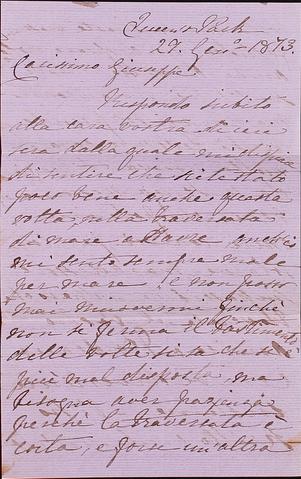 Queen's Park
27. Gen.º 1873.
Carissimo Giuseppe
Rispondo subito
alla cara vostra di ieri
sera dalla quale mi dispiace
di sentire che sei stato
poco bene anche questa
volta, nella traversata
di mare a Havre anch'io
mi sento sempre male
per mare e non posso
mai muovermi finchè
non si ferma il bastimento
delle volte si sa che si è
più mal disposta ma
bisogna aver pazienza
perchè la traversata è
corta, e forse un altra